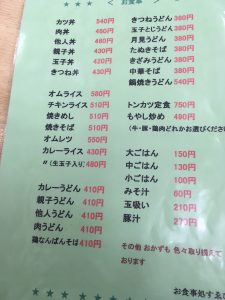 ★ ★ ★ < お食事 >
カツ丼 540円
肉丼 480円
他人丼 480円
親子丼 430円
玉子丼 420円
きつね丼 430円
オムライス 580円
チキンライス 510円
焼きめし 510円
焼きそば 510円
オムレツ 550円
カレーライス 430円
〃(生玉子入り) 480円
カレーうどん 410円
親子うどん 410円
他人うどん 410円
肉うどん 410円
鶏なんばそば 410円
きつねうどん 380円
玉子とじうどん 380円
月見うどん 380円
たぬきそば 380円
きざみうどん 380円
中華そば 380円
鍋焼きうどん 540円
トンカツ定食 750円
もやし炒め 490円
(牛・豚・鶏肉どれかお選びくださ
大ごはん 150円
中ごはん 130円
小ごはん 100円
みそ汁 60円
玉吸い 210円
豚汁 270円
その他 おかずも 色々取り揃えて
おります
★ ★ ★
お食事処すゑ